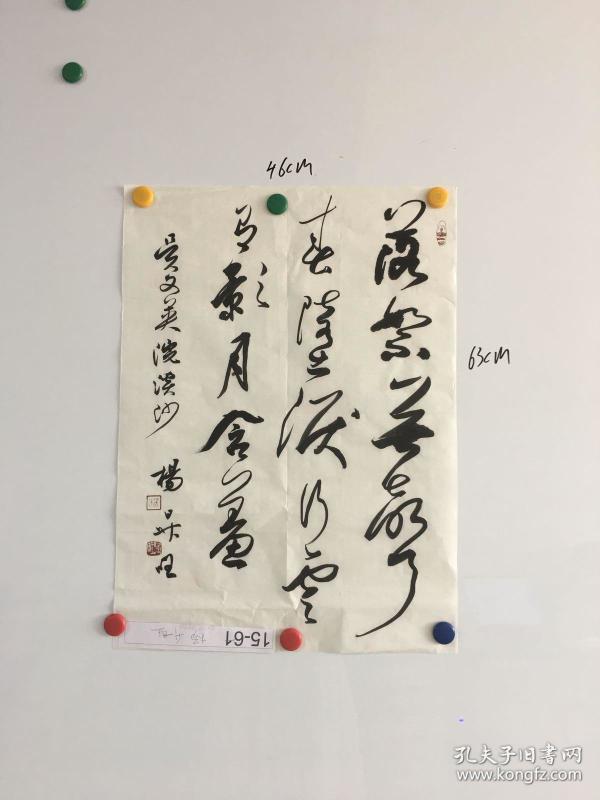 46cm
63cm
落絮無聲
春墮淚行雲
有影月含羞
吳文英浣溪沙
楊昇
15-61
孔夫子旧书网
www.kongfz.com